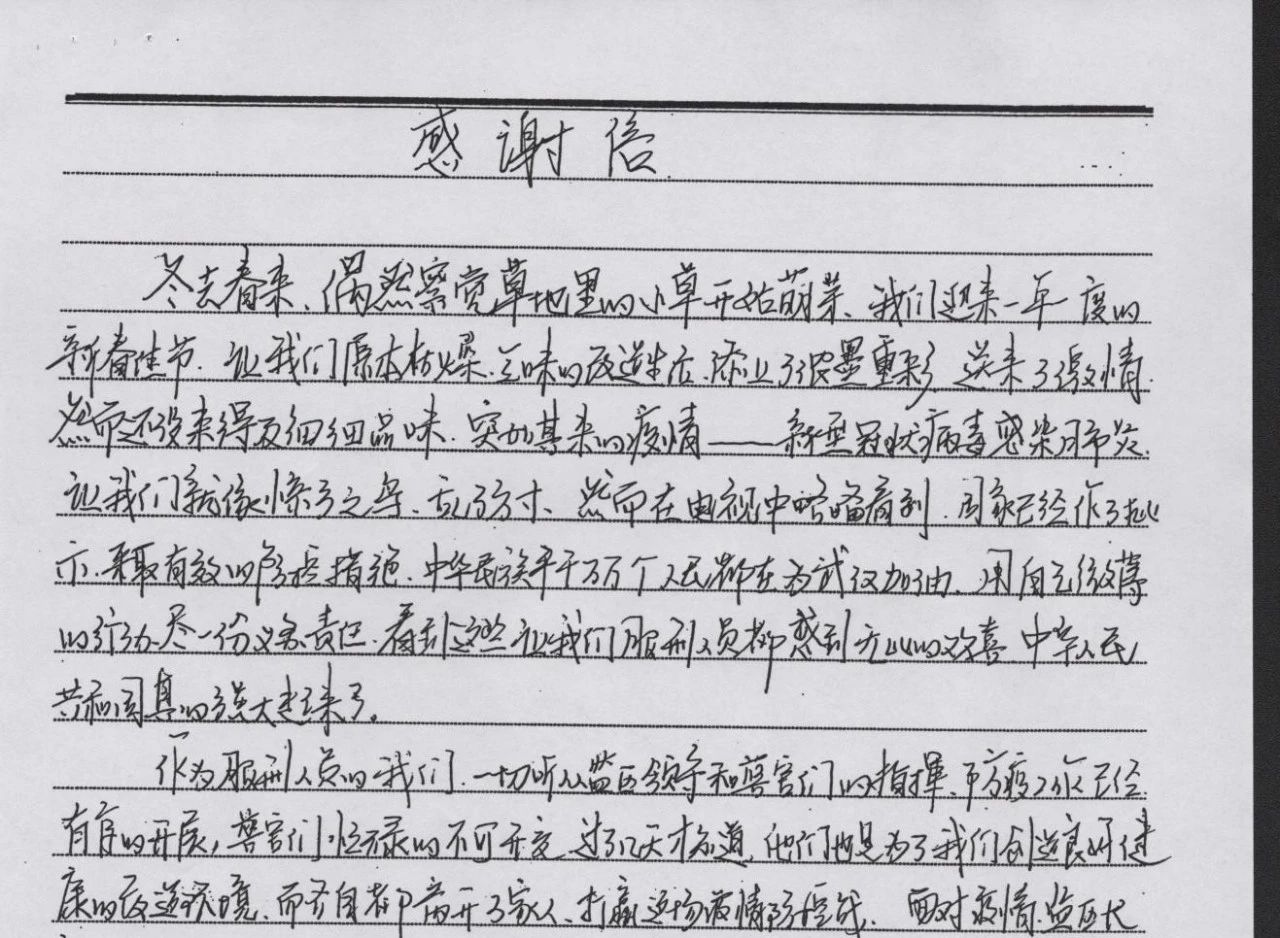 感谢信
冬去春来、偶然察觉草地里的小草开始萌芽、我们迎来一年一度的
新春佳节. 让我们原本枯燥.乏味的改造生活.添上了浓墨重彩 送来了激情.
然而还没来得及细细品味. 突如其来的疫情——新型冠状病毒感染肺炎.
让我们就像惊弓之鸟、乱了方寸、然而在电视中略备看到. 国家已经作了批
示.采取有效的防控措施. 中华民族千千万万个人民都在为武汉加油. 用自己微薄
的行动.尽一份义务责任.看到这些让我们服刑人员都感到无比的欢喜 中华人民
共和国真的强大起来了。
作为服刑人员的我们.一切听从监区领导和警官们的指挥.防疫工作已经
有序的开展，警官们忙碌的不可开交 过了几天才知道.他们也是为了我们创造良好健
康的改造环境、而各自都离开了家人、打赢这场疫情防控战. 面对疫情.监区长